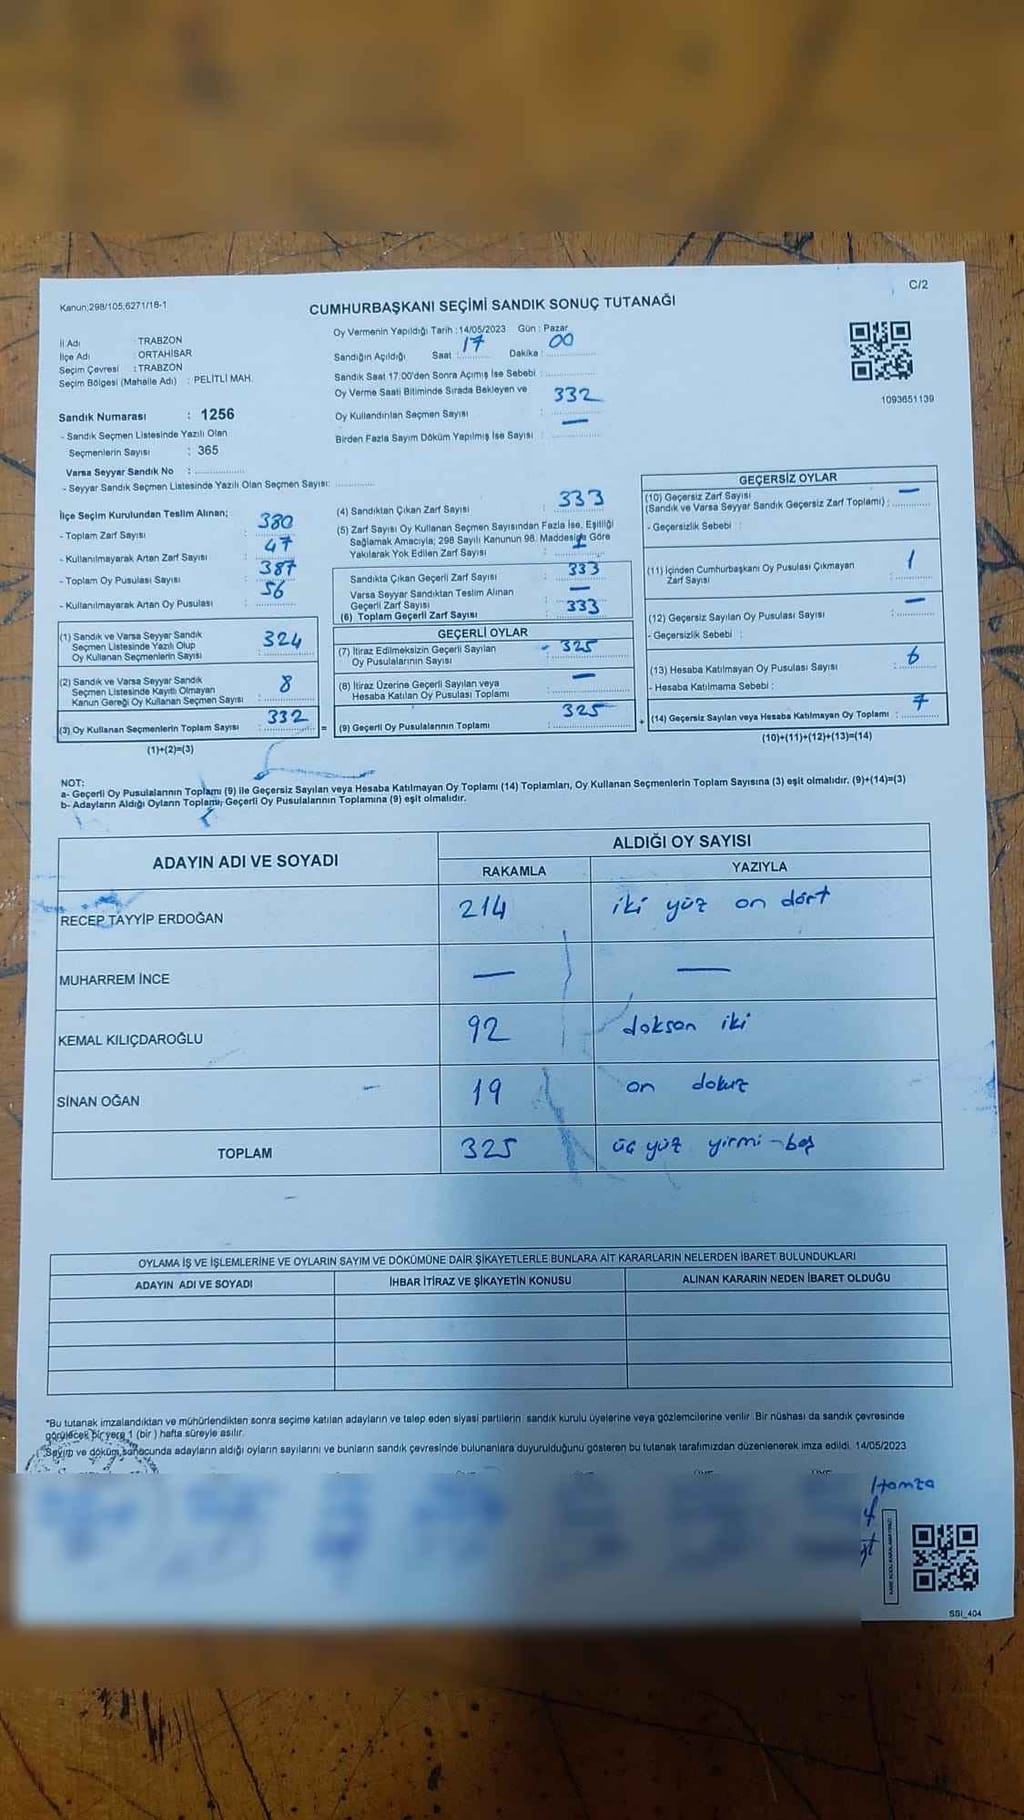 Kanun:298/105,6271/18-1
C/2
CUMHURBAŞKANI SEÇİMİ SANDIK SONUÇ TUTANAĞI
İl Adı : TRABZON
İlçe Adı : ORTAHİSAR
Seçim Çevresi : TRABZON
Seçim Bölgesi (Mahalle Adı) : PELİTLİ MAH.
Sandık Numarası : 1256
- Sandık Seçmen Listesinde Yazılı Olan
Seçmenlerin Sayısı : 365
Varsa Seyyar Sandık No :
- Seyyar Sandık Seçmen Listesinde Yazılı Olan Seçmen Sayısı:
Oy Vermenin Yapıldığı Tarih :14/05/2023 Gün : Pazar
Sandığın Açıldığı Saat : 17 Dakika : 00
Sandık Saat 17:00'den Sonra Açılmış İse Sebebi :
Oy Verme Saati Bitiminde Sırada Bekleyen ve
Oy Kullandırılan Seçmen Sayısı : 332
Birden Fazla Sayım Döküm Yapılmış İse Sayısı : —
1093651139
İlçe Seçim Kurulundan Teslim Alınan;
- Toplam Zarf Sayısı : 380
- Kullanılmayarak Artan Zarf Sayısı : 47
- Toplam Oy Pusulası Sayısı : 387
- Kullanılmayarak Artan Oy Pusulası : 56
(1) Sandık ve Varsa Seyyar Sandık
Seçmen Listesinde Yazılı Olup
Oy Kullanan Seçmenlerin Sayısı : 324
(2) Sandık ve Varsa Seyyar Sandık
Seçmen Listesinde Kayıtlı Olmayan
Kanun Gereği Oy Kullanan Seçmen Sayısı : 8
(3) Oy Kullanan Seçmenlerin Toplam Sayısı : 332
(1)+(2)=(3)
(4) Sandıktan Çıkan Zarf Sayısı : 333
(5) Zarf Sayısı Oy Kullanan Seçmen Sayısından Fazla İse, Eşitliği
Sağlamak Amacıyla; 298 Sayılı Kanunun 98. Maddesine Göre
Yakılarak Yok Edilen Zarf Sayısı : 1
Sandıkta Çıkan Geçerli Zarf Sayısı : 333
Varsa Seyyar Sandıktan Teslim Alınan
Geçerli Zarf Sayısı : —
(6) Toplam Geçerli Zarf Sayısı : 333
GEÇERLİ OYLAR
(7) İtiraz Edilmeksizin Geçerli Sayılan
Oy Pusulalarının Sayısı : 325
(8) İtiraz Üzerine Geçerli Sayılan veya
Hesaba Katılan Oy Pusulası Toplamı : —
= (9) Geçerli Oy Pusulalarının Toplamı : 325
GEÇERSİZ OYLAR
(10) Geçersiz Zarf Sayısı
(Sandık ve Varsa Seyyar Sandık Geçersiz Zarf Toplamı) : —
- Geçersizlik Sebebi :
(11) İçinden Cumhurbaşkanı Oy Pusulası Çıkmayan
Zarf Sayısı : 1
(12) Geçersiz Sayılan Oy Pusulası Sayısı : —
- Geçersizlik Sebebi :
(13) Hesaba Katılmayan Oy Pusulası Sayısı : 6
- Hesaba Katılmama Sebebi :
+ (14) Geçersiz Sayılan veya Hesaba Katılmayan Oy Toplamı : 7
(10)+(11)+(12)+(13)=(14)
NOT:
a- Geçerli Oy Pusulalarının Toplamı (9) ile Geçersiz Sayılan veya Hesaba Katılmayan Oy Toplamı (14) Toplamları, Oy Kullanan Seçmenlerin Toplam Sayısına (3) eşit olmalıdır. (9)+(14)=(3)
b- Adayların Aldığı Oyların Toplamı, Geçerli Oy Pusulalarının Toplamına (9) eşit olmalıdır.
ADAYIN ADI VE SOYADI ALDIĞI OY SAYISI
RAKAMLA YAZIYLA
RECEP TAYYİP ERDOĞAN 214 iki yüz on dört
MUHARREM İNCE — —
KEMAL KILIÇDAROĞLU 92 doksan iki
SİNAN OĞAN 19 on dokuz
TOPLAM 325 üç yüz yirmi-beş
OYLAMA İŞ VE İŞLEMLERİNE VE OYLARIN SAYIM VE DÖKÜMÜNE DAİR ŞİKAYETLERLE BUNLARA AİT KARARLARIN NELERDEN İBARET BULUNDUKLARI
ADAYIN ADI VE SOYADI İHBAR İTİRAZ VE ŞİKAYETİN KONUSU ALINAN KARARIN NEDEN İBARET OLDUĞU
*Bu tutanak imzalandıktan ve mühürlendikten sonra seçime katılan adayların ve talep eden siyasi partilerin sandık kurulu üyelerine veya gözlemcilerine verilir. Bir nüshası da sandık çevresinde
görülecek bir yere 1 (bir ) hafta süreyle asılır.
Sayım ve döküm sonucunda adayların aldığı oyların sayılarını ve bunların sandık çevresinde bulunanlara duyurulduğunu gösteren bu tutanak tarafımızdan düzenlenerek imza edildi. 14/05/2023
Hamza
SSİ_404